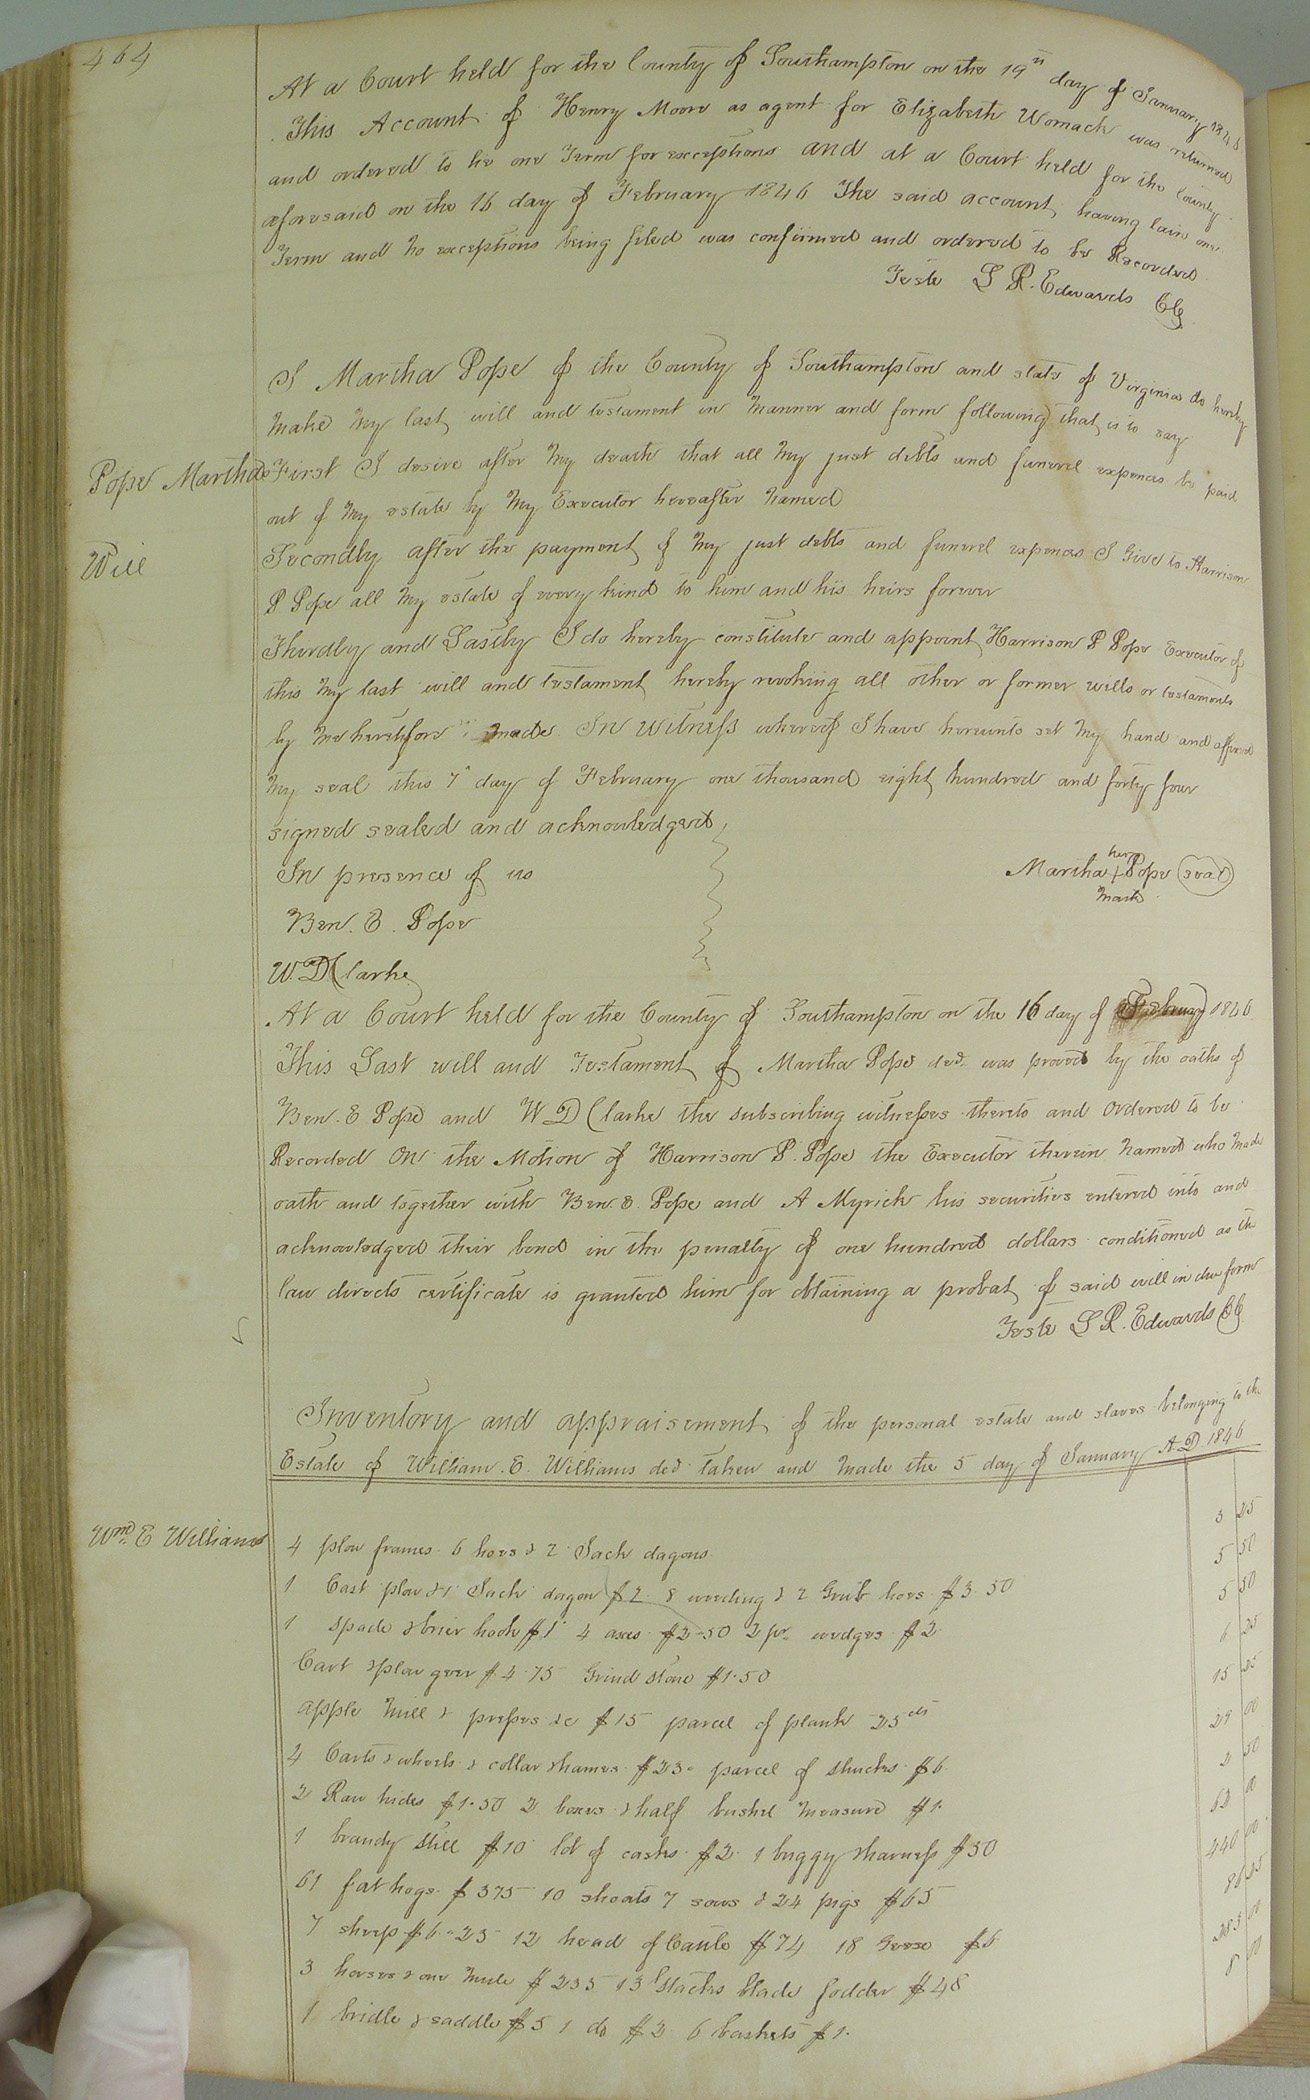 464
At a Court held for the County of Southampton on the 19th day of January 1846
This Account of Henry Moore as agent for Elizabeth Womack was returned
and ordered to lie one Term for exceptions and at a Court held for the County
aforesaid on the 16 day of February 1846 The said account having lain one
Term and no exceptions being filed was confirmed and ordered to be Recorded
Teste L R. Edwards CC
I Martha Pope of the County of Southampton and state of Virginia do hereby
make my last will and testament in manner and form following that is to say
Pope Martha
First I desire after my death that all my just debts and funeral expences be paid
out of my estate by my Executor hereafter named
Will
Secondly after the payment of my just debts and funeral expences I Give to Harrison
P Pope all my estate of every kind to him and his heirs forever
Thirdly and Lastly I do hereby constitute and appoint Harrison P Pope Executor of
this my last will and testament hereby revoking all other or former wills or testaments
by me heretofore made. In Witness whereof I have hereunto set my hand and affixed
my seal this 7 day of February one thousand eight hundred and forty four
signed sealed and acknowledged
In presence of us
Martha her + mark Pope (seal)
Ben. E. Pope
W. D Clarke
At a Court held for the County of Southampton on the 16 day of February 1846
This Last will and Testament of Martha Pope decd. was proved by the oaths of
Ben. E Pope and W D Clarke the subscribing witnesses thereto and ordered to be
Recorded On the Motion of Harrison P. Pope the Executor therein named who made
oath and together with Ben. E. Pope and A Myrick his securities entered into and
acknowledged their bond in the penalty of one hundred dollars conditioned as the
law directs certificate is granted him for obtaining a probat of said will in due form
Teste L R. Edwards CC
Inventory and appraisement of the personal estate and slaves belonging to the
Estate of William. E. Williams decd taken and made the 5 day of January A D. 1846
Wm. E Williams
4 plow frames 6 hoes & 2 Jack dagons 3 25
1 Cast plow & 1 Jack dagon $2. 8 weeding & 2 Grub hoes $3.50 5 50
1 spade & brier hook $1 4 axes $2-50 2 pr. wedges $2 5 50
Cart & plow gear $4.75 Grind stone $1.50 6 25
apple mill & presses &c $15 parcel of plank 25 cts 15 25
2 Carts & wheels & collar & hames $23- parcel of shucks $6 29 00
2 Raw hides $1.50 2 boxes & half bushel measure $1. 2 50
1 brandy still $10 lot of casks $2. 1 buggy & harness $50 62 00
61 fat hogs $375 10 shoats 7 sows & 24 pigs $65 440 00
7 sheep $6-25 12 head of Cattle $74 18 Geese $6 86 25
3 horses & one mule $235 13 stacks blade fodder $48 283 00
1 bridle & saddle $5 1 do $2 6 baskets $1. 8 00